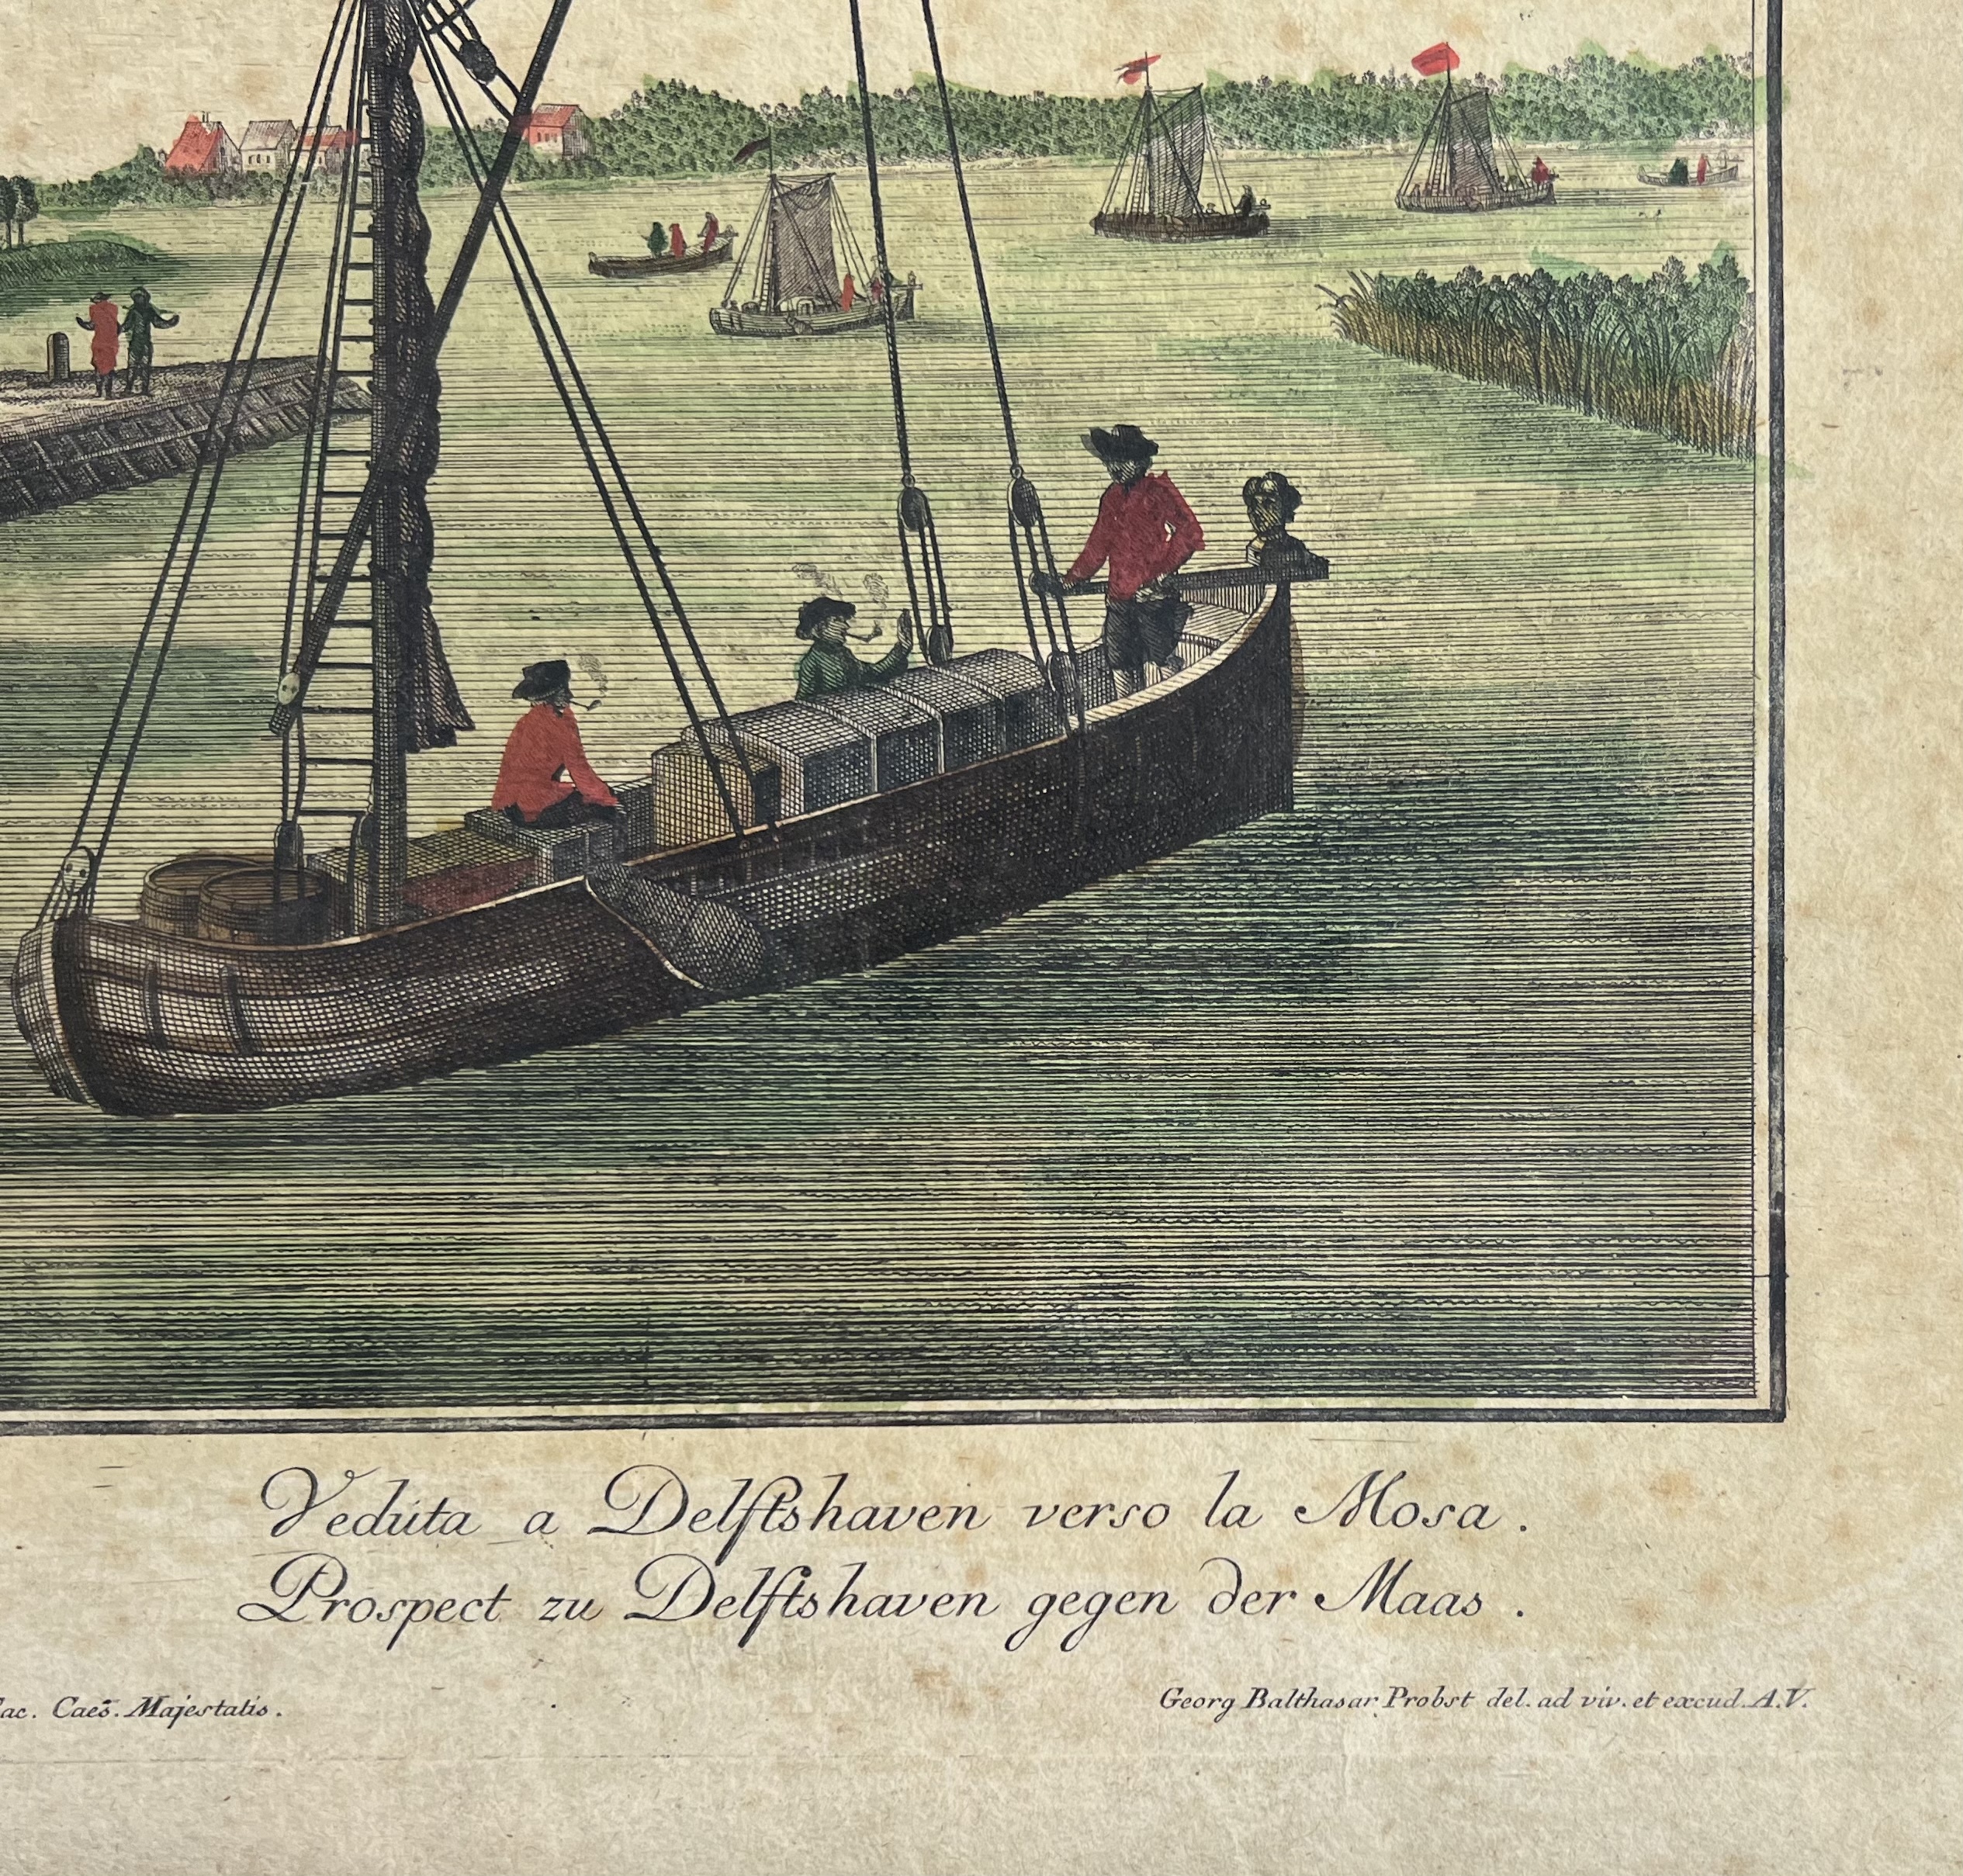 Vedúta a Delftshaven verso la Mosa.
Prospect zu Delftshaven gegen der Maas.
ac. Caes. Majestatis.
Georg Balthasar Probst del. ad viv. et excud. A.V.